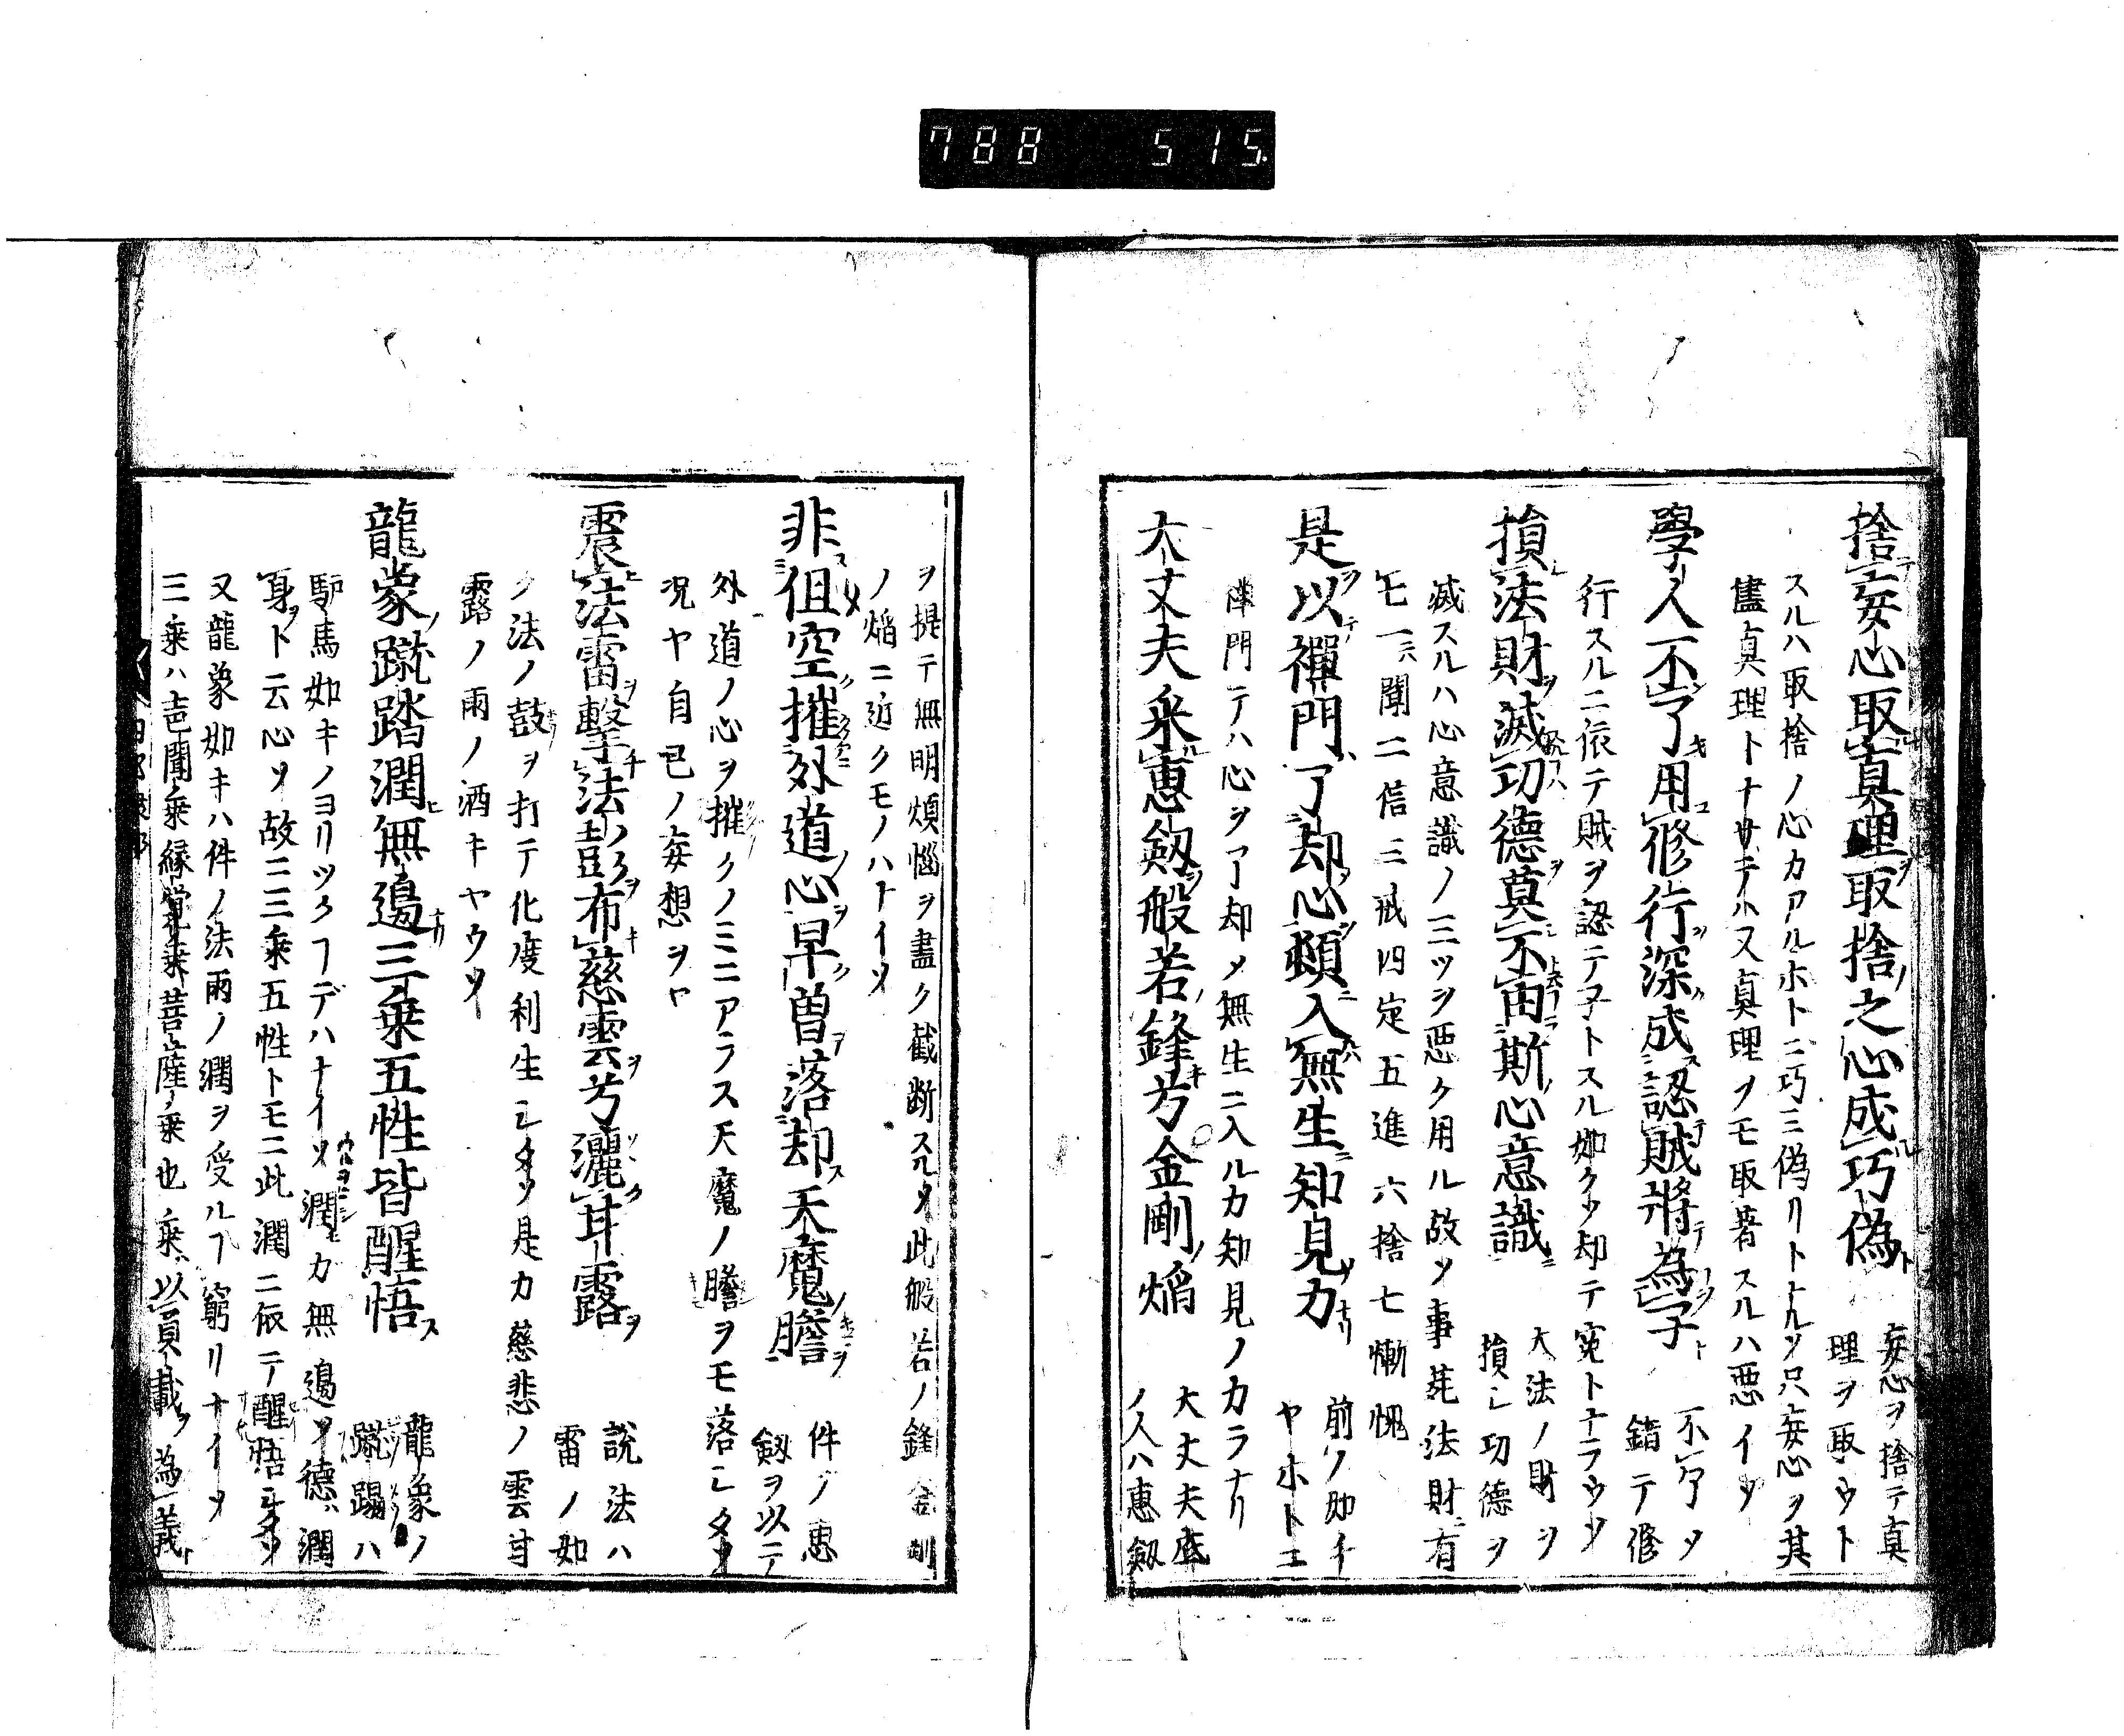 788 515
捨妄心取真理取捨之心成巧偽
妄心ヲ捨テ真
理ヲ取ウト
スルハ取捨ノ心カアルホトニ巧ミ偽リトナルソ只妄心ヲ其
儘真理トナサテハ又真理ヲモ取著スルハ悪イソ
學人不了用修行深成認賊將為子
不了ソ
錯テ修
行スルニ依テ賊ヲ認テ子トスル如クソ却テ寃トナラウソ
損法財滅功德莫不由斯心意識
大法ノ財ヲ
損シ功德ヲ
滅スルハ心意識ノ三ツヲ悪ク用ル故ソ事苑法財有
七一ハ聞二信三戒四定五進六捨七慚愧
是以禪門了却心頓入無生知見力
前ノ如キ
ヤホトエ
禪門テハ心ヲ了却ソ無生ニ入ルカ知見ノカラナリ
大丈夫秉恵劔般若鋒兮金剛焔
大丈夫底
ノ人ハ恵劔
ヲ提テ無明煩惱ヲ盡ク截断スルソ此般若ノ鋒金剛
ノ焔ニ近クモノハナイソ
非但空摧外道心早曽落却天魔膽
件ノ恵
劔ヲ以テ
外道ノ心ヲ摧クノミニアラス天魔ノ膽ヲモ落シタソ
況ヤ自己ノ妄想ヲヤ
震法雷擊法鼓布慈雲兮灑甘露
説法ハ
雷ノ如
ク法ノ鼓ヲ打テ化度利生シタソ是カ慈悲ノ雲甘
露ノ雨ノ洒キヤウソ
龍象蹴踏潤無邉三乗五性皆醒悟
龍象ノ
蹴蹋ハ
馿馬如キノヨリツクヿデハナイソ潤カ無邉ソ德ハ潤
身ト云心ソ故ニ三乗五性トモニ此潤ニ依テ醒悟シタソ
又龍象如キハ件ノ法雨ノ潤ヲ受ルヿ窮リナイソ
三乗ハ声聞乗縁覚乗菩薩乗也乗以負載為義